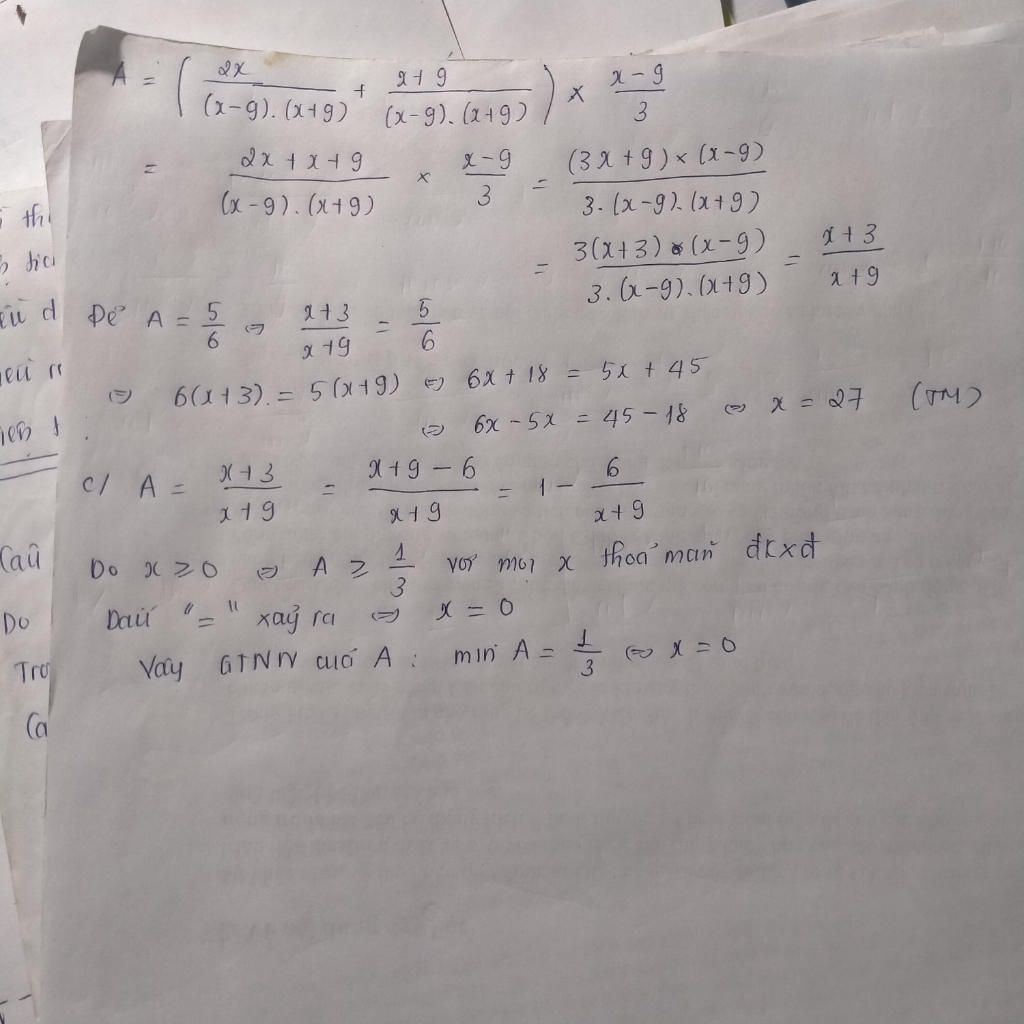 A = ( 2x / (x-9).(x+9) + x+9 / (x-9).(x+9) ) × x-9 / 3
= 2x + x + 9 / (x-9).(x+9) × x-9 / 3 = (3x+9)×(x-9) / 3.(x-9).(x+9)
= 3(x+3).(x-9) / 3.(x-9).(x+9) = x+3 / x+9
Để A = 5/6 ⇔ x+3 / x+9 = 5/6
⇔ 6(x+3) = 5(x+9) ⇔ 6x + 18 = 5x + 45
⇔ 6x - 5x = 45 - 18 ⇔ x = 27 (TM)
c/ A = x+3 / x+9 = x+9-6 / x+9 = 1 - 6 / x+9
Do x ≥ 0 ⇔ A ≥ 1/3 với mọi x thoả mãn đkxđ
Dấu "=" xảy ra ⇔ x = 0
Vậy GTNN của A : min A = 1/3 ⇔ x = 0
Câu
Do